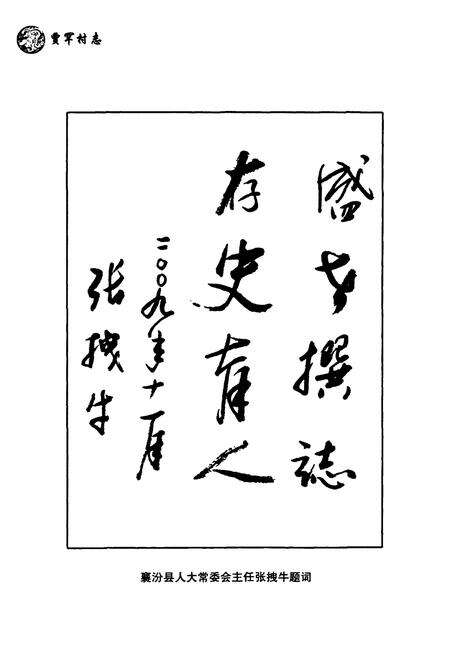 贾罕村志
盛世撰誌
存史育人
二〇〇九年十一月
张拽牛
襄汾县人大常委会主任张拽牛题词